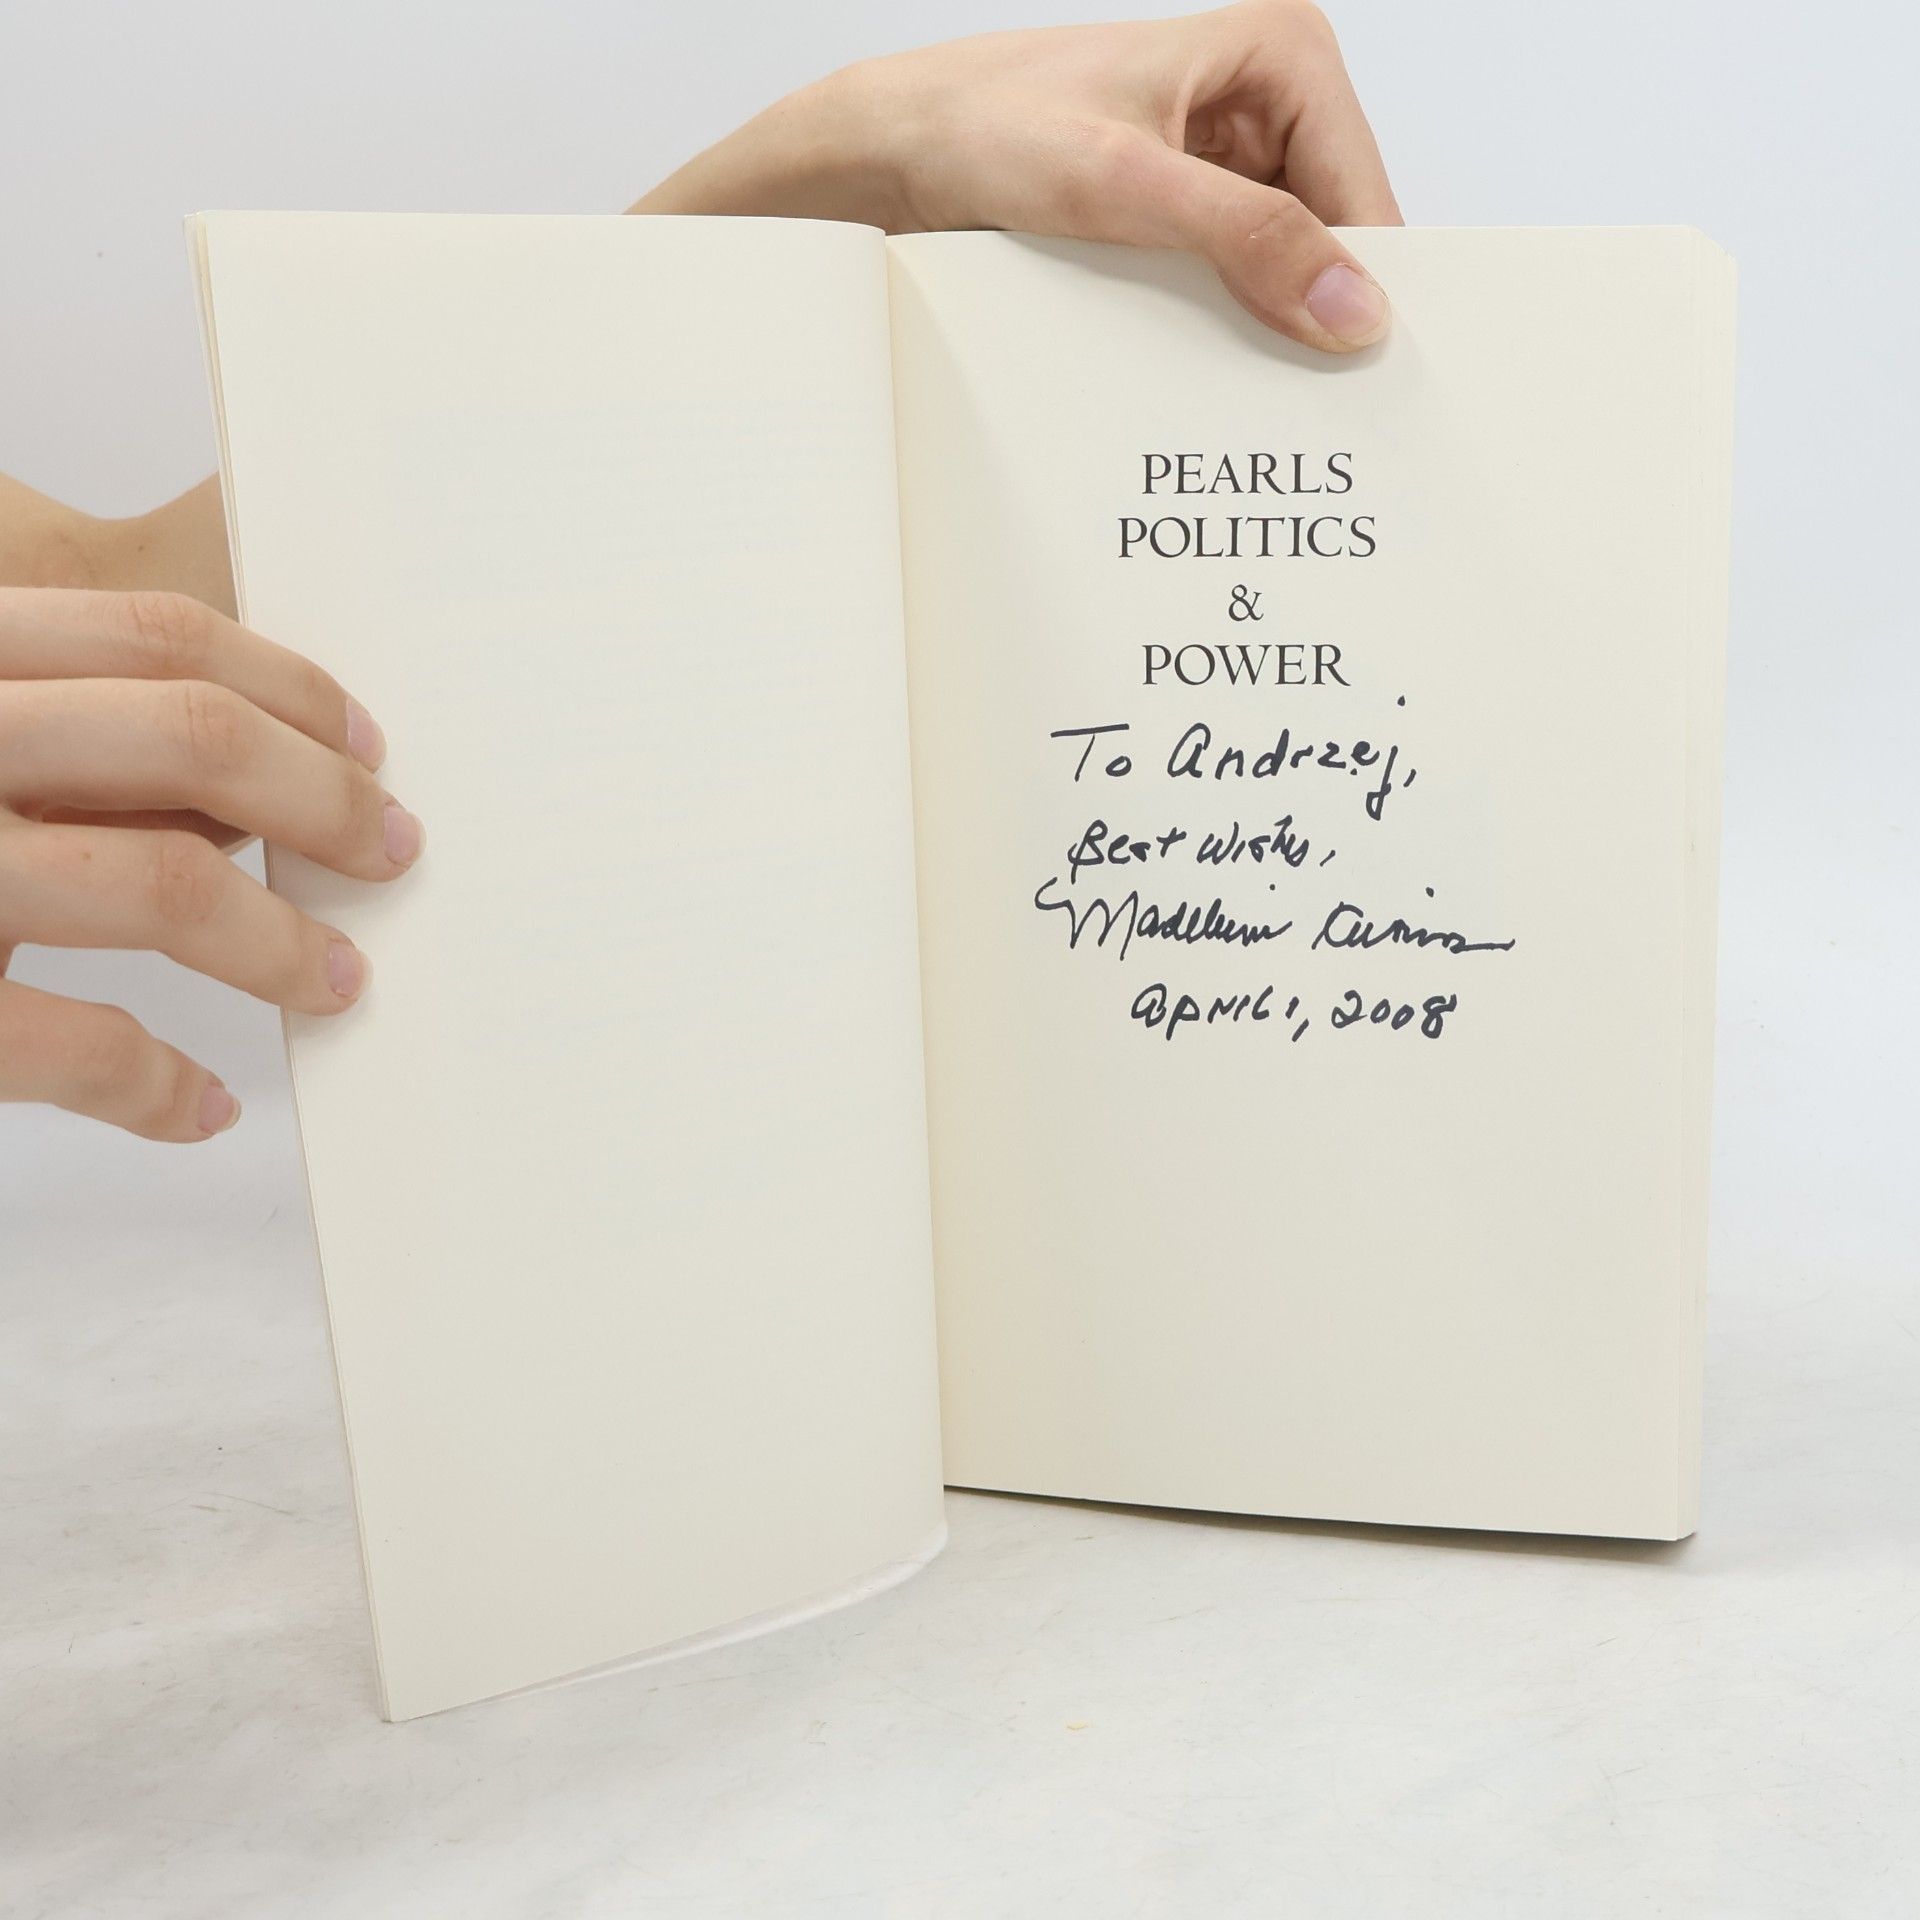 PEARLS
POLITICS
&
POWER
To Andrzej,
Best Wishes,
Madeleine Kunin
April 1, 2008